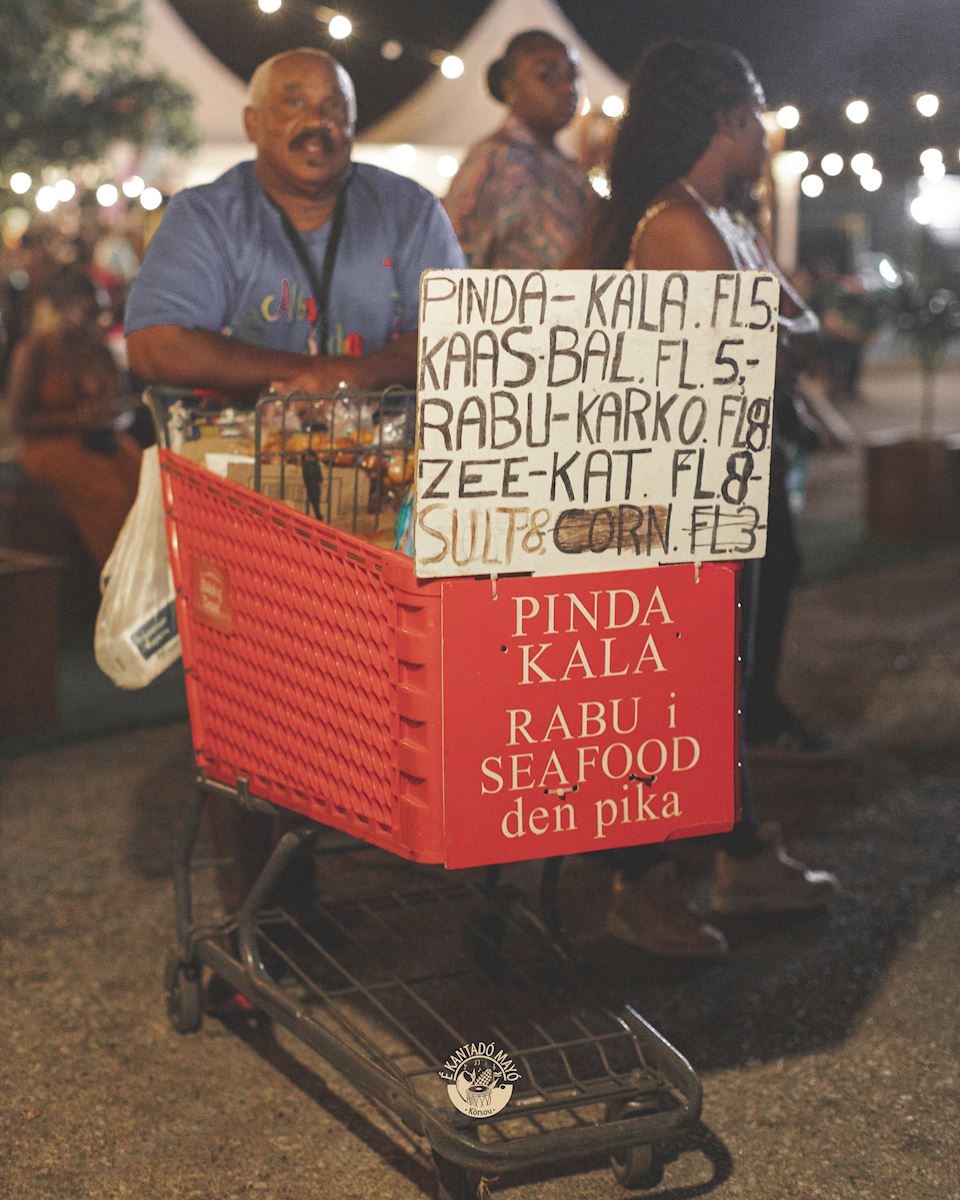 PINDA-KALA. FL5,
KAAS-BAL. FL. 5,-
RABU-KARKO. FL8
ZEE-KAT. FL.8-
SULT-8. CORN. FL3-
PINDA
KALA
RABU i
SEAFOOD
den pika
É KANTADÓ MAYÓ
Kòrsou